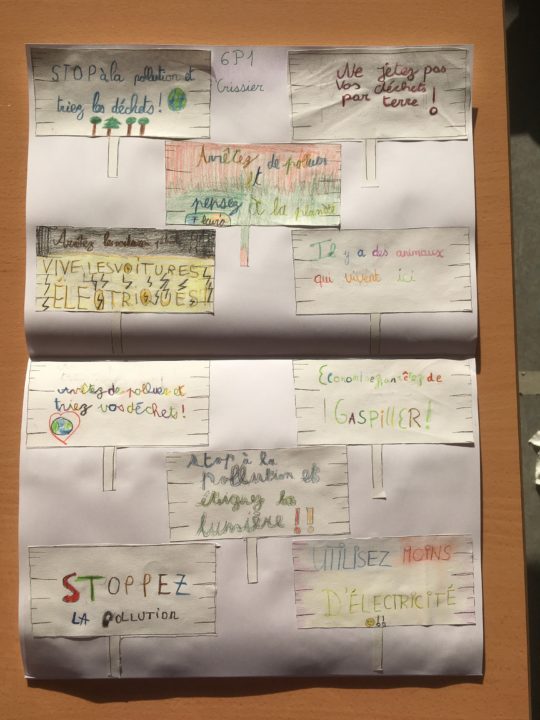 STOP à la pollution et
triez les déchets !
6P1
Crissier
Ne jetez pas
vos déchets
par terre !
Arrêtez de polluer
et
pensez à la planète
VIVE LES VOITURES
ÉLECTRIQUES
Il y a des animaux
qui vivent ici
Arrêtez de polluer et
triez vos déchets !
Economisez arrêtez de
GASPILLER !
Stop à la
pollution et
éteignez la
lumière !!
STOPPEZ
LA POLLUTION
UTILISEZ MOINS
D'ÉLECTRICITÉ